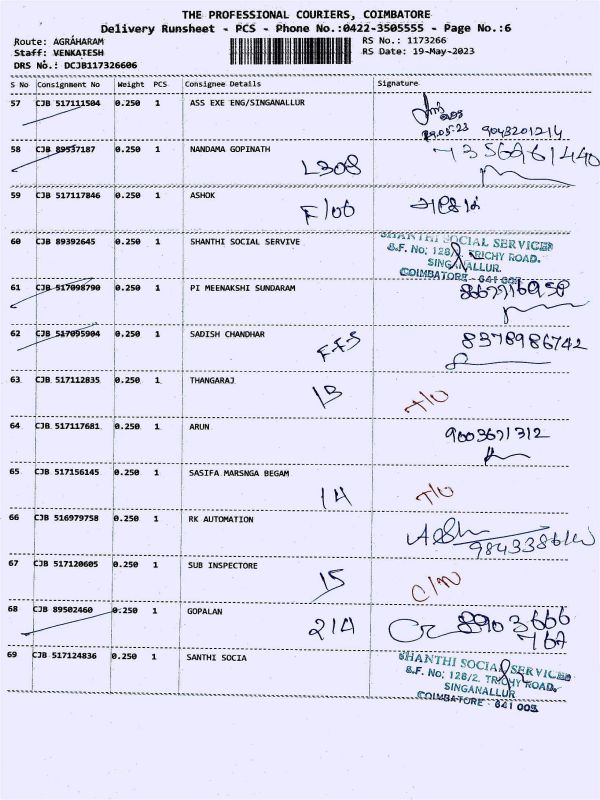 THE PROFESSIONAL COURIERS, COIMBATORE
Delivery Runsheet - PCS - Phone No.:0422-3505555 - Page No.:6
Route: AGRAHARAM
RS No.: 1173266
Staff: VENKATESH
RS Date: 19-May-2023
DRS No.: DCJB117326606
S No Consignment No Weight PCS Consignee Details Signature
57 CJB 517111504 0.250 1 ASS EXE ENG/SINGANALLUR
9043201214
58 CJB 89537187 0.250 1 NANDAMA GOPINATH
L308
59 CJB 517117846 0.250 1 ASHOK
F106
60 CJB 89392645 0.250 1 SHANTHI SOCIAL SERVIVE
SHANTHI SOCIAL SERVICES
S.F. No; 128/2. TRICHY ROAD.
SINGANALLUR.
COIMBATORE - 641 005
61 CJB 517098790 0.250 1 PI MEENAKSHI SUNDARAM
62 CJB 517095904 0.250 1 SADISH CHANDHAR
8378986742
63 CJB 517112835 0.250 1 THANGARAJ
13
64 CJB 517117681 0.250 1 ARUN
9003671312
65 CJB 517156145 0.250 1 SASIFA MARSNGA BEGAM
14
66 CJB 516979758 0.250 1 RK AUTOMATION
67 CJB 517120605 0.250 1 SUB INSPECTORE
15
68 CJB 89502460 0.250 1 GOPALAN
214
8903666
767
69 CJB 517124836 0.250 1 SANTHI SOCIA
SHANTHI SOCIAL SERVICES
S.F. No; 128/2. TRICHY ROAD.
SINGANALLUR
COIMBATORE - 641 005